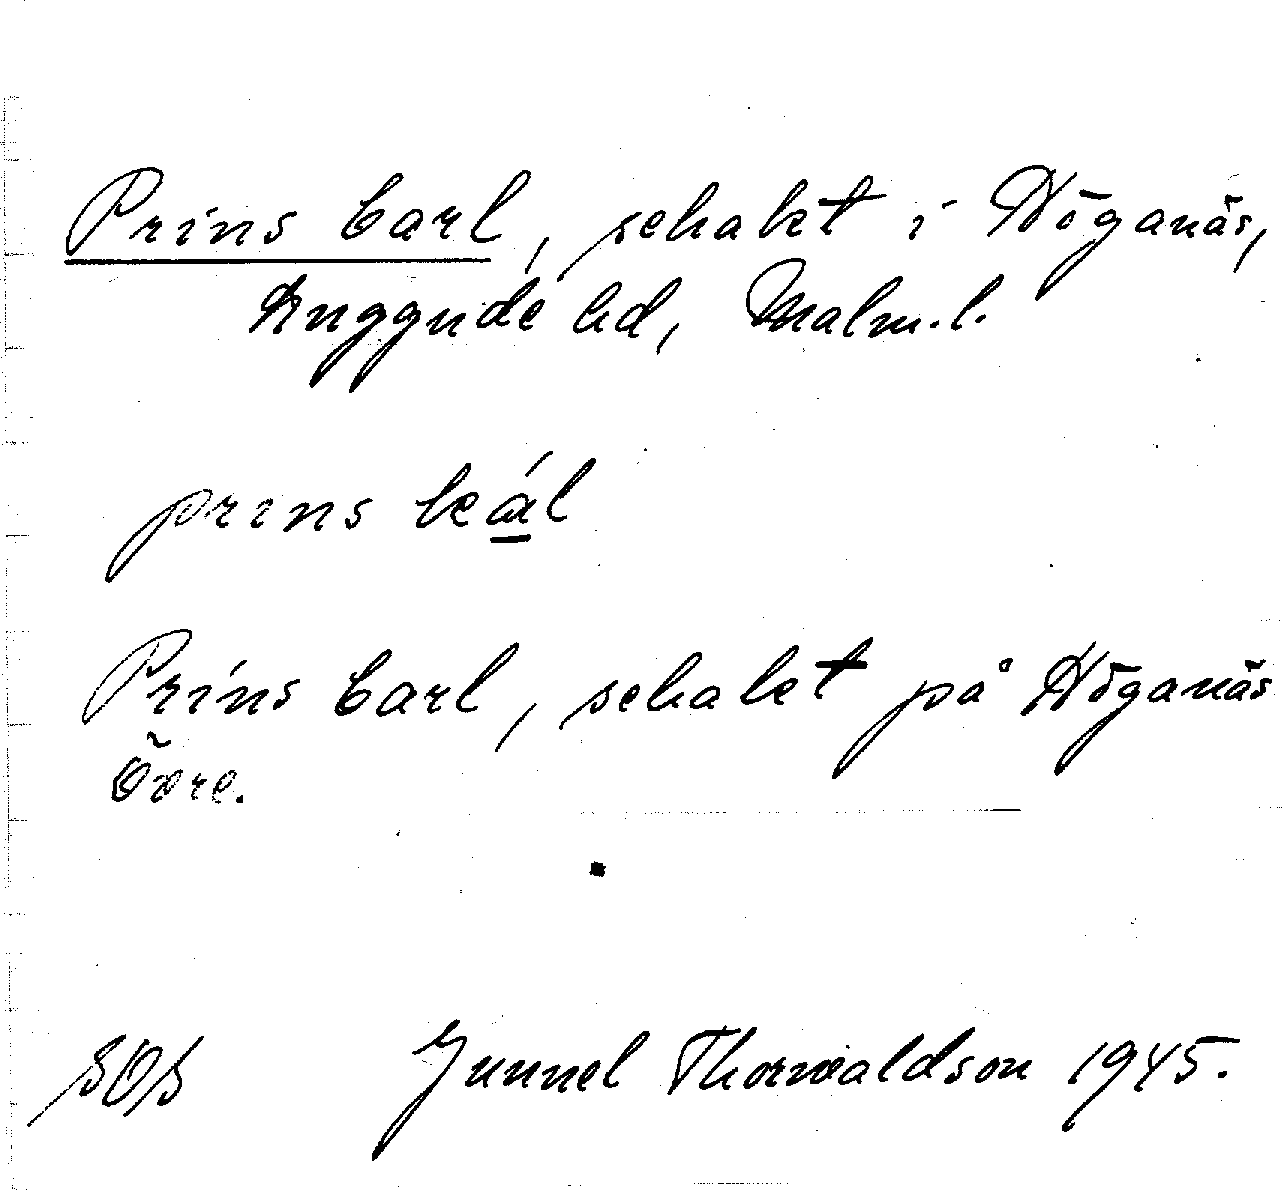 Prins Carl, schakt i Höganäs,
Luggude hd, Malm.l.
prins kál
Prins Carl, schakt på Höganäs
Övre.
Gunnel Thorwaldson 1945.